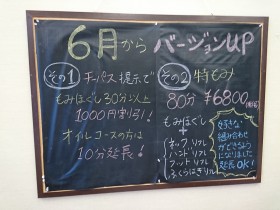 6月から バージョンUP
その1 チーパス提示で
もみほぐし30分以上
1000円割引!
オイルコースの方は
10分延長!
その2 特もみ
80分 ¥6800(税込)
もみほぐし
+
ネックリフレ
ハンドリフレ
フットリフレ
ふくらはぎリフレ
好きな
組み合わせ
ができるよう
になりました
延長OK!